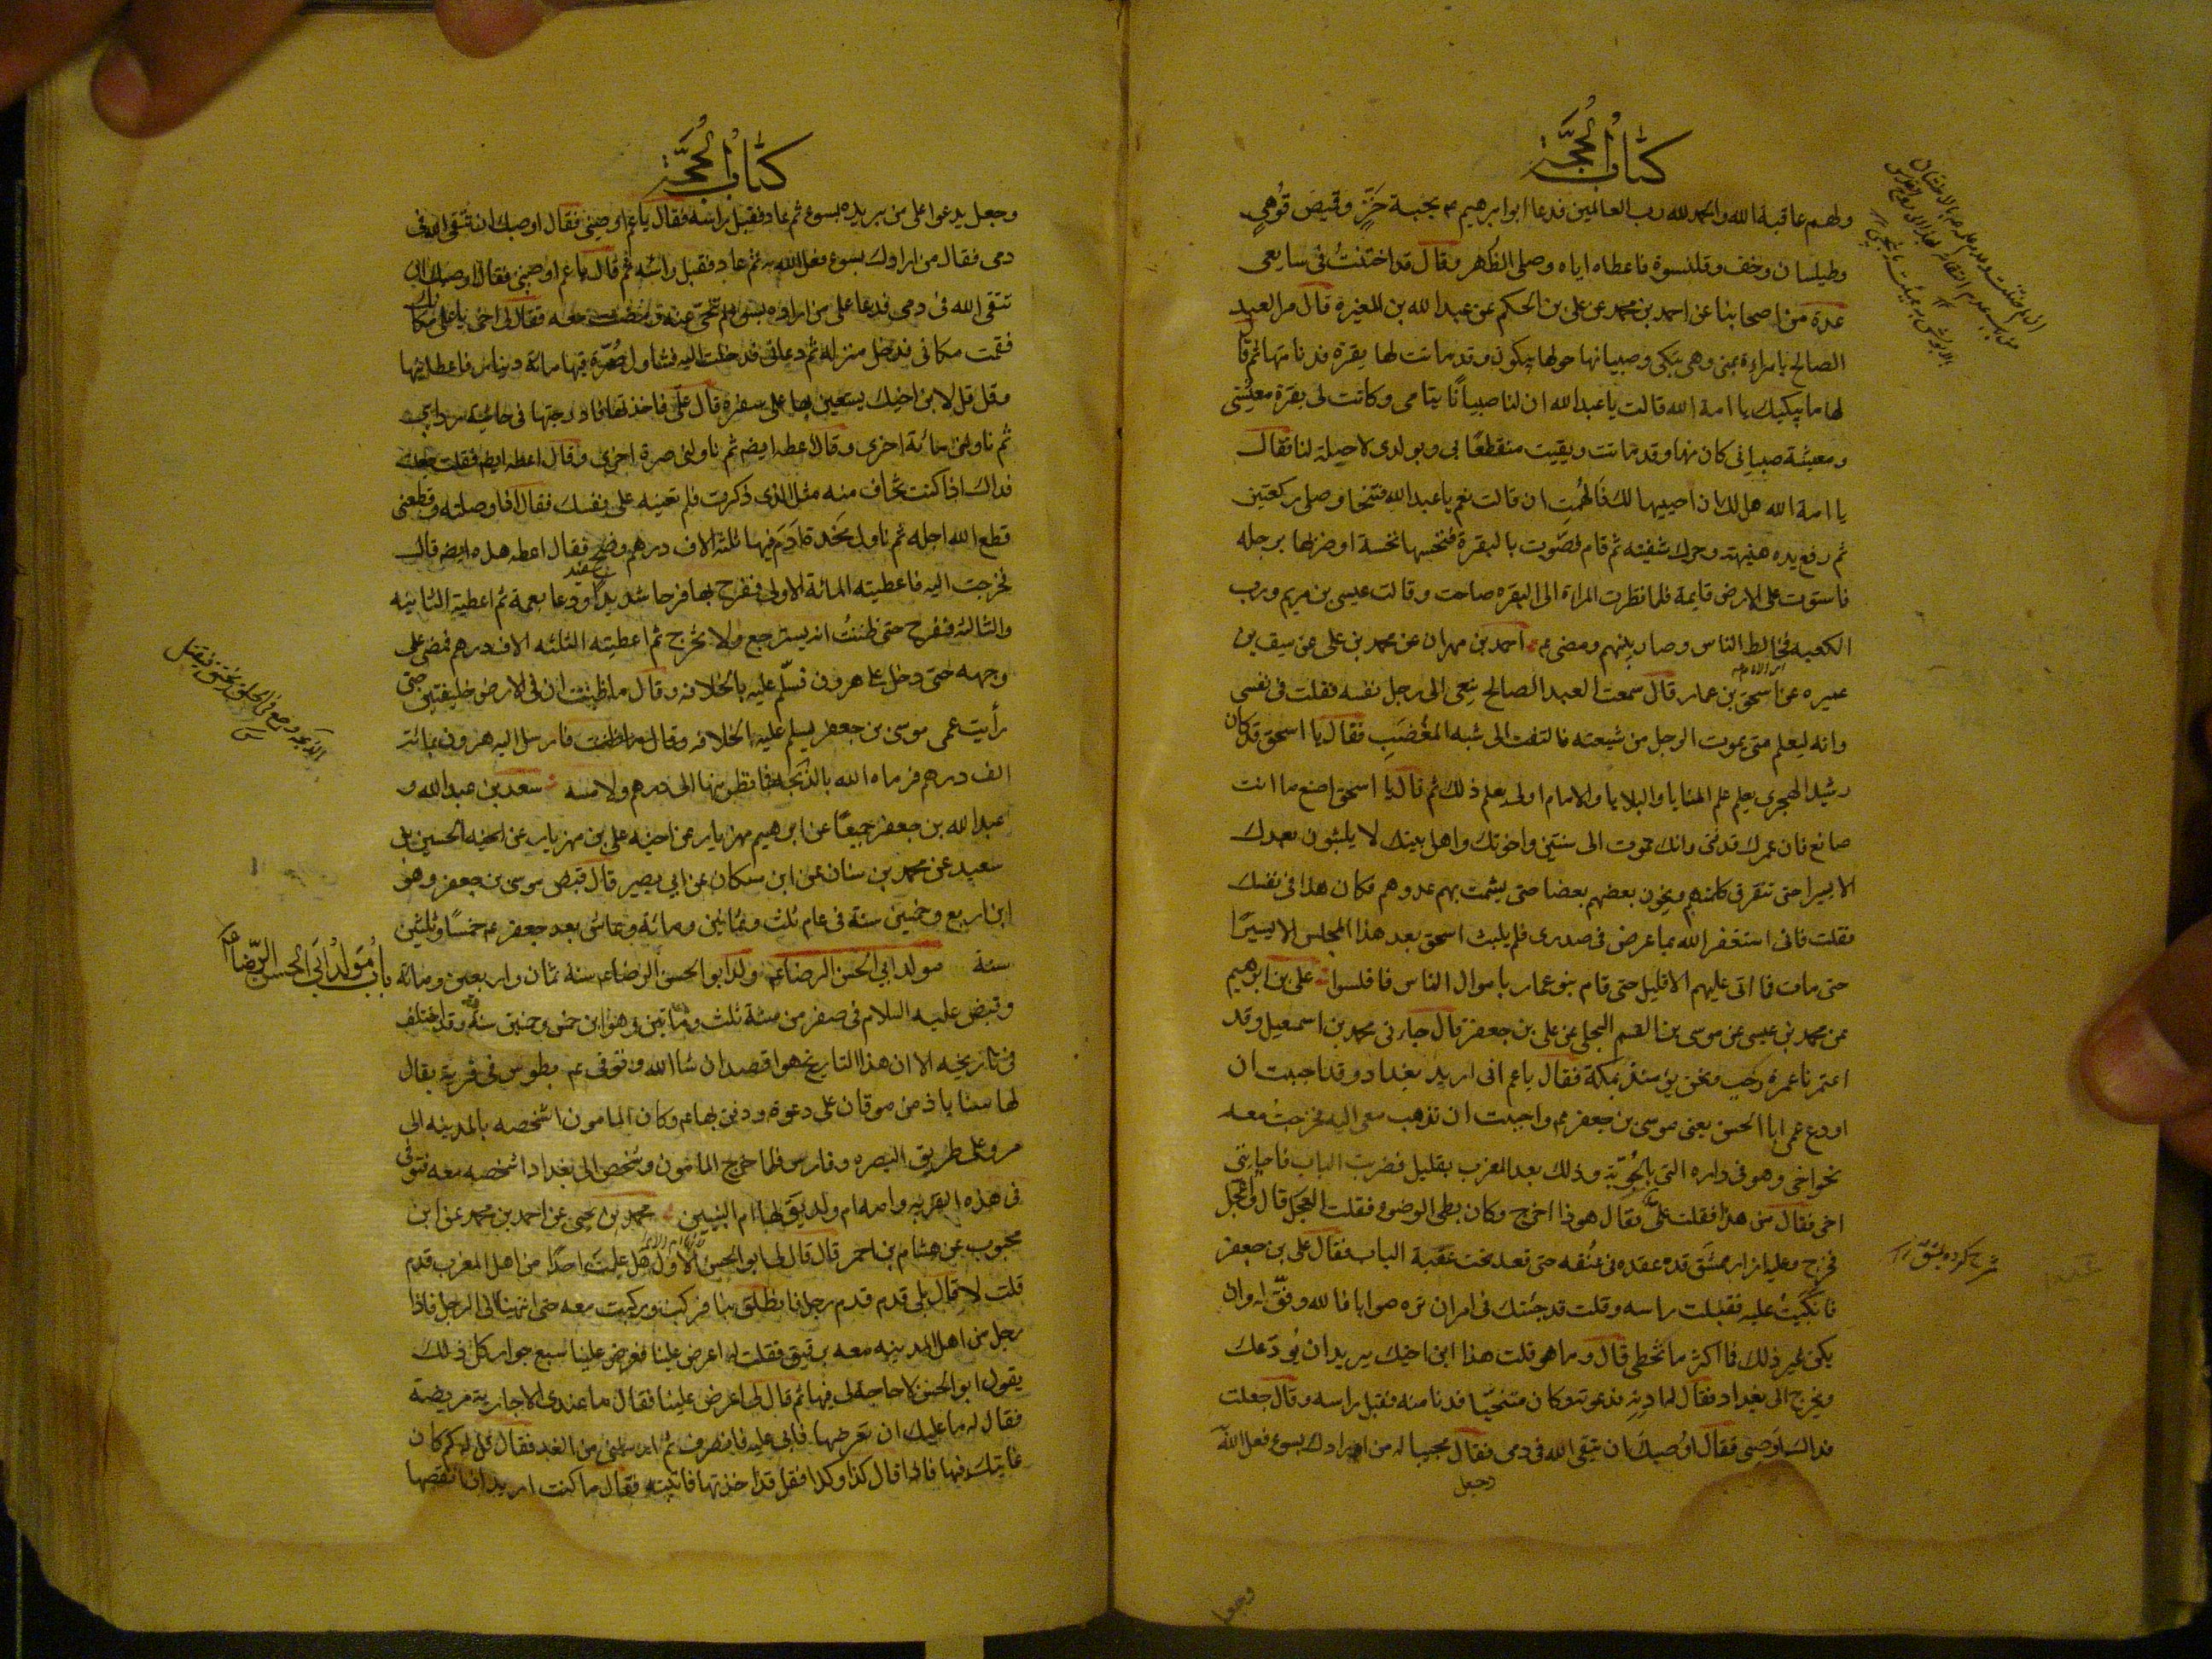 كتاب الحجة
ولهم عاقبة الله والحمد لله رب العالمين فدعا ابو ابرهيم عم بجبة خز وقميص قوهي
وطيلسان وخف وقلنسوة فاعطاه اياه وصلى الظهر وقال قد اختتنت في سابعي
عدة من اصحابنا عن احمد بن محمد عن علي بن الحكم عن عبد الله بن المغيرة قال مر العبد
الصالح بامراءة بمنى وهي تبكي وصبيانها حولها يبكون وقد ماتت لها بقرة فدنا منها ثم قا
لها ما يبكيك يا امة الله قالت يا عبد الله ان لنا صبيانا يتامى وكانت لي بقرة معيشتي
ومعيشة صبياني كان منها وقد ماتت وبقيت منقطعا بي وبولدي لا حيلة لنا فقال
يا امة الله هل لك ان احييها لك فالهمت ان قالت نعم يا عبد الله فتنحا وصلى ركعتين
ثم رفع يده هنيهة وحرك شفتيه ثم قام فصوت بالبقرة فنخسها نخسة او ضربها برجله
فاستوت على الارض قايمة فلما نظرت المراة الى البقره صاحت وقالت عيسى بن مريم ورب
الكعبه فخالط الناس وصار بينهم ومضى عم احمد بن مهران عن محمد بن علي عن سيف بن
عميره عن اسحق بن عمار قال سمعت العبد الصالح ينعى الى رجل نفسه فقلت في نفسي
وانه ليعلم متى يموت الرجل من شيعته فالتفت الى شبه المغضب فقال يا اسحق قد كان
رشيد الهجري يعلم علم المنايا والبلايا والامام اولى بعلم ذلك ثم قال يا اسحق اصنع ما انت
صانع فان عمرك قد فنى وانك تموت الى سنتين واخوتك واهل بيتك لا يلبثون بعدك
الا يسيرا حتى تتفرق كلمتهم ويخون بعضهم بعضا حتى يشمت بهم عدوهم فكان هذا في نفسك
فقلت فاني استغفر الله بما عرض في صدري فلم يلبث اسحق بعد هذا المجلس الا يسيرا
حتى مات فما اتى عليهم الا قليل حتى قام بنو عمار باموال الناس فافلسوا علي بن ابرهيم
عن محمد بن عيسى عن موسى بن القسم البجلي عن علي بن جعفر قال جاءني محمد بن اسمعيل وقد
اعتمرنا عمرة رجب ونحن يومئذ بمكة فقال يا عم اني اريد بغداد وقد احببت ان
اودع عمي ابا الحسن يعني موسى بن جعفر عم واحببت ان تذهب معي اليه فخرجت معه
نحو اخي وهو في داره التي بالحوبة وذلك بعد المغرب بقليل فضربت الباب فاجابني
اخي فقال من هذا فقلت علي فقال هوذا اخرج وكان بطي الوضوء فقلت العجل قال واعجل
فخرج وعليه ازار ممشق قد عقده في عنقه حتى قعد تحت عتبة الباب فقال علي بن جعفر
فانكببت عليه فقبلت راسه وقلت قد جئتك في امر ان تره صوابا فالله وفق له وان
يكن غير ذلك فما اكثر ما نخطي قال وما هو قلت هذا ابن اخيك يريد ان يودعك
ويخرج الى بغداد فقال لي ادعه فدعوته وكان متنحيا فدنا منه فقبل راسه وقال جعلت
فداك اوصني فقال اوصيك ان تتقي الله في دمي فقال مجيبا له من ارادك بسوء فعل الله
وجعل
شرح كرده بمشق
وجعل
كتاب الحجة
وجعل يدعوا على من يريده بسوء ثم عاد فقبل راسه فقال يا عم اوصني فقال اوصيك ان تتقي الله في
دمي فقال من ارادك بسوء فعل الله به ثم عاد فقبل راسه ثم قال يا عم اوصني فقال اوصيك ان
تتقي الله في دمي فدعا على من اراده بسوء ثم تنحى عنه ومضيت معه فقال لي اخي يا علي مكانك
فقمت مكاني فدخل منزله ثم دعاني فدخلت اليه فتناول صرة فيها مائة دينار فاعطانيها
وقل لابن اخيك يستعين بها على سفره قال علي فاخذتها فادرجتها في حاشية ردائي
ثم ناولني مائة اخرى وقال اعطه ايضا ثم ناولني صرة اخرى وقال اعطه ايضا فقلت جعلت
فداك اذا كنت تخاف منه مثل الذي ذكرت فلم تعينه على نفسك فقال اذا وصلته وقطعني
قطع الله اجله ثم تناول مخدة ادم فيها ثلثه الاف درهم وضح فقال اعطه هذه ايضا قال
فخرجت اليه فاعطيته المائة الاولى ففرح بها فرحا شديدا ودعا لعمه ثم اعطيته الثانيه
والثالثه ففرح حتى ظننت انه يسترجع ولا يخرج ثم اعطيته الثلثه الاف درهم فمضى على
وجهه حتى دخل على هرون فسلم عليه بالخلافه وقال ما ظننت ان في الارض خليفتين حتى
رأيت عمي موسى بن جعفر يسلم عليه بالخلافه فارسل اليه هرون بمائة
الف درهم فرماه الله بالذبحه فما نظر منها الى درهم ولا مسه سعد بن عبد الله و
عبد الله بن جعفر جميعا عن ابرهيم مهزيار عن اخيه علي بن مهزيار عن الحسين بن
سعيد عن محمد بن سنان عن ابن مسكان عن ابي بصير قال قبض موسى بن جعفر وهو
ابن اربع وخمسين سنة في عام ثلث وثمانين ومائة وعاش بعد جعفر عم خمسا وثلثين
سنة مولد ابي الحسن الرضا عم ولد ابو الحسن الرضا عم سنة ثمان واربعين ومائة
باب مولد ابي الحسن الرضا عم
وقبض عليه السلام في صفر من سنة ثلث ومائتين وهو ابن خمس وخمسين سنة وقد اختلف
في تاريخه الا ان هذا التاريخ هو اقصد ان شا الله وتوفى عم بطوس في قرية يقال
لها سناباذ من موقان على دعوة ودفن بها عم وكان المامون اشخصه بالمدينه الى
مرو على طريق البصره وفارس فلما خرج المامون وشخص الى بغداد اشخصه معه فتوفى
في هذه القريه وامه ام ولد يق لها ام البنين محمد بن يحيى عن احمد بن محمد عن ابن
محبوب عن هشام بن احمر قال قال لي ابو الحسن الاول هل علمت احدا من اهل المغرب قدم
قلت لا قال بلى قدم قدم رجل فانطلق بنا فركب وركبت معه حتى انتهينا الى الرجل فاذا
رجل من اهل المدينه معه رقيق فقلت له اعرض علينا فعرض علينا سبع جوار كل ذلك
يقول ابو الحسن لا حاجة لي فيها ثم قال اعرض علينا فقال ما عندي الا جارية مريضة
فقال له ما عليك ان تعرضها فابى عليه فانصرف ثم ارسلني من الغد فقال قل له كم كان
غايتك فيها فاذا قال كذا وكذا فقل قد اخذتها فاتيته فقال ما كنت اريد ان انقصها